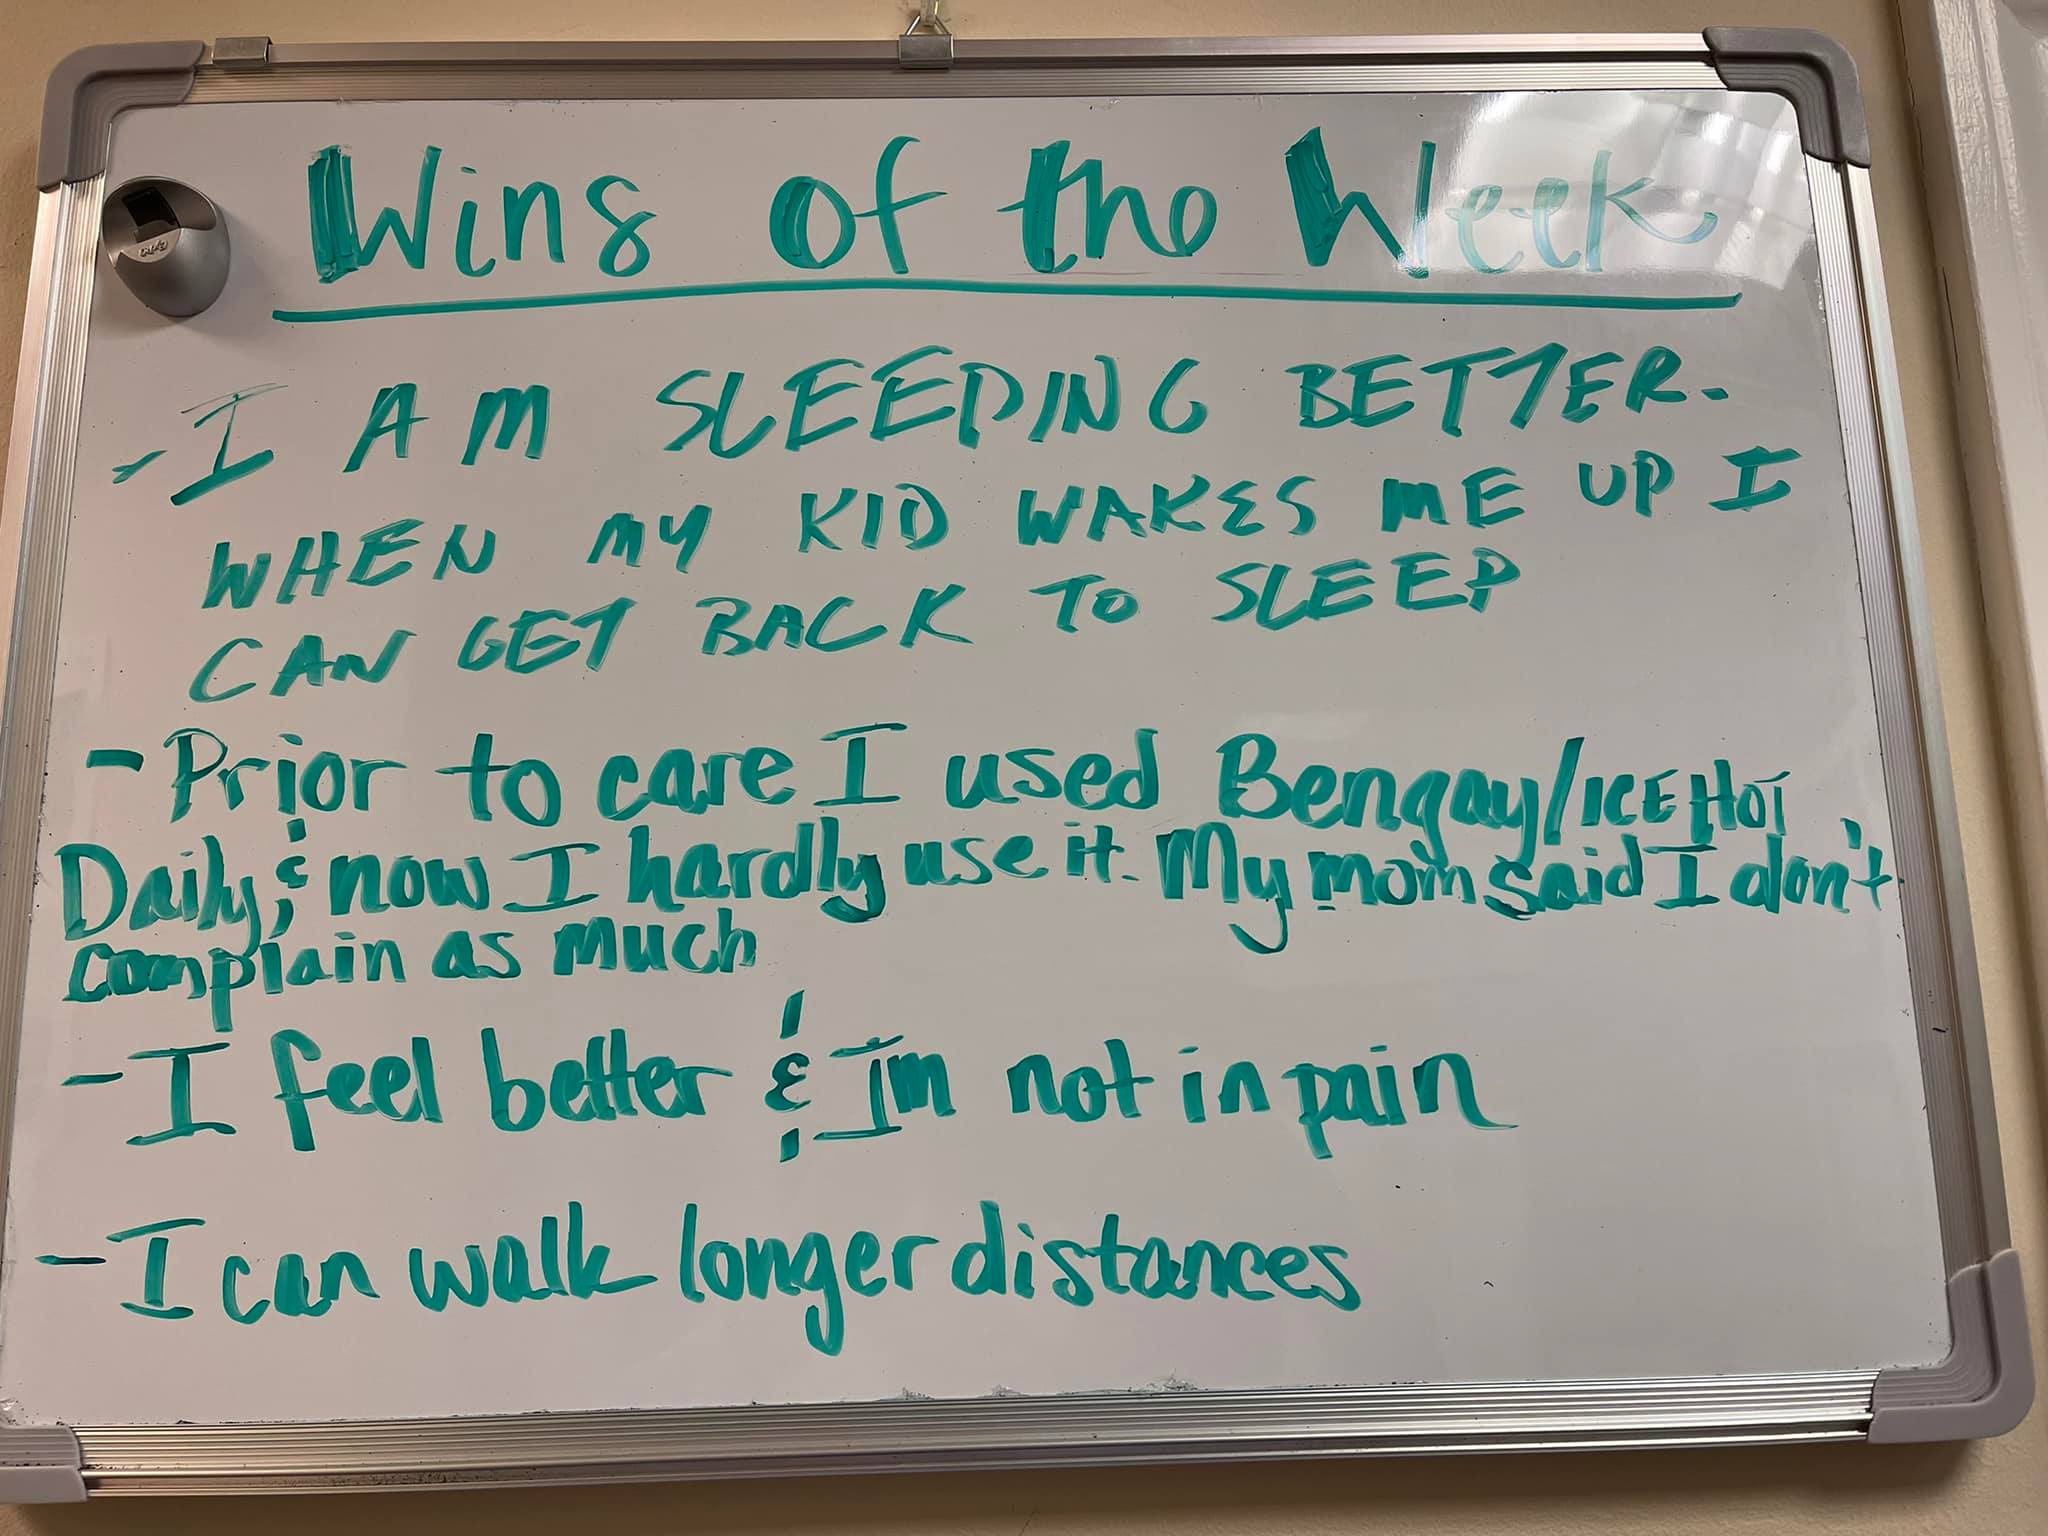 Wins of the Week
- I AM SLEEPING BETTER.
WHEN MY KID WAKES ME UP I
CAN GET BACK TO SLEEP
- Prior to care I used Bengay/ICE HOT
Daily, & now I hardly use it. My mom said I don't
complain as much
- I feel better & I'm not in pain
- I can walk longer distances